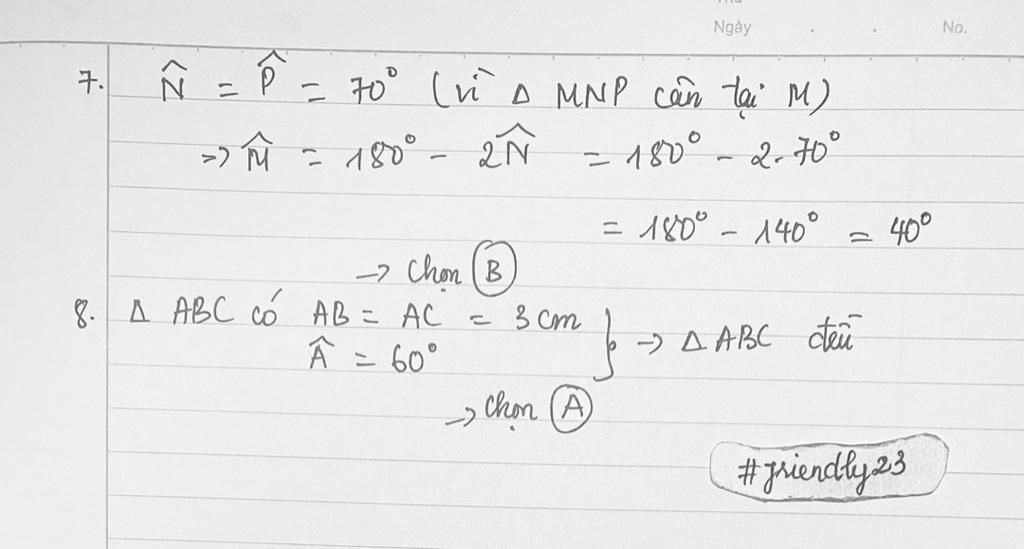 Ngày . . No.
7. N̂ = P̂ = 70° (vì Δ MNP cân tại M)
=> M̂ = 180° - 2N̂ = 180° - 2.70°
= 180° - 140° = 40°
-> Chọn B
8. Δ ABC có AB = AC = 3 cm
Â = 60° } -> Δ ABC đều
-> Chọn A
#friendly23